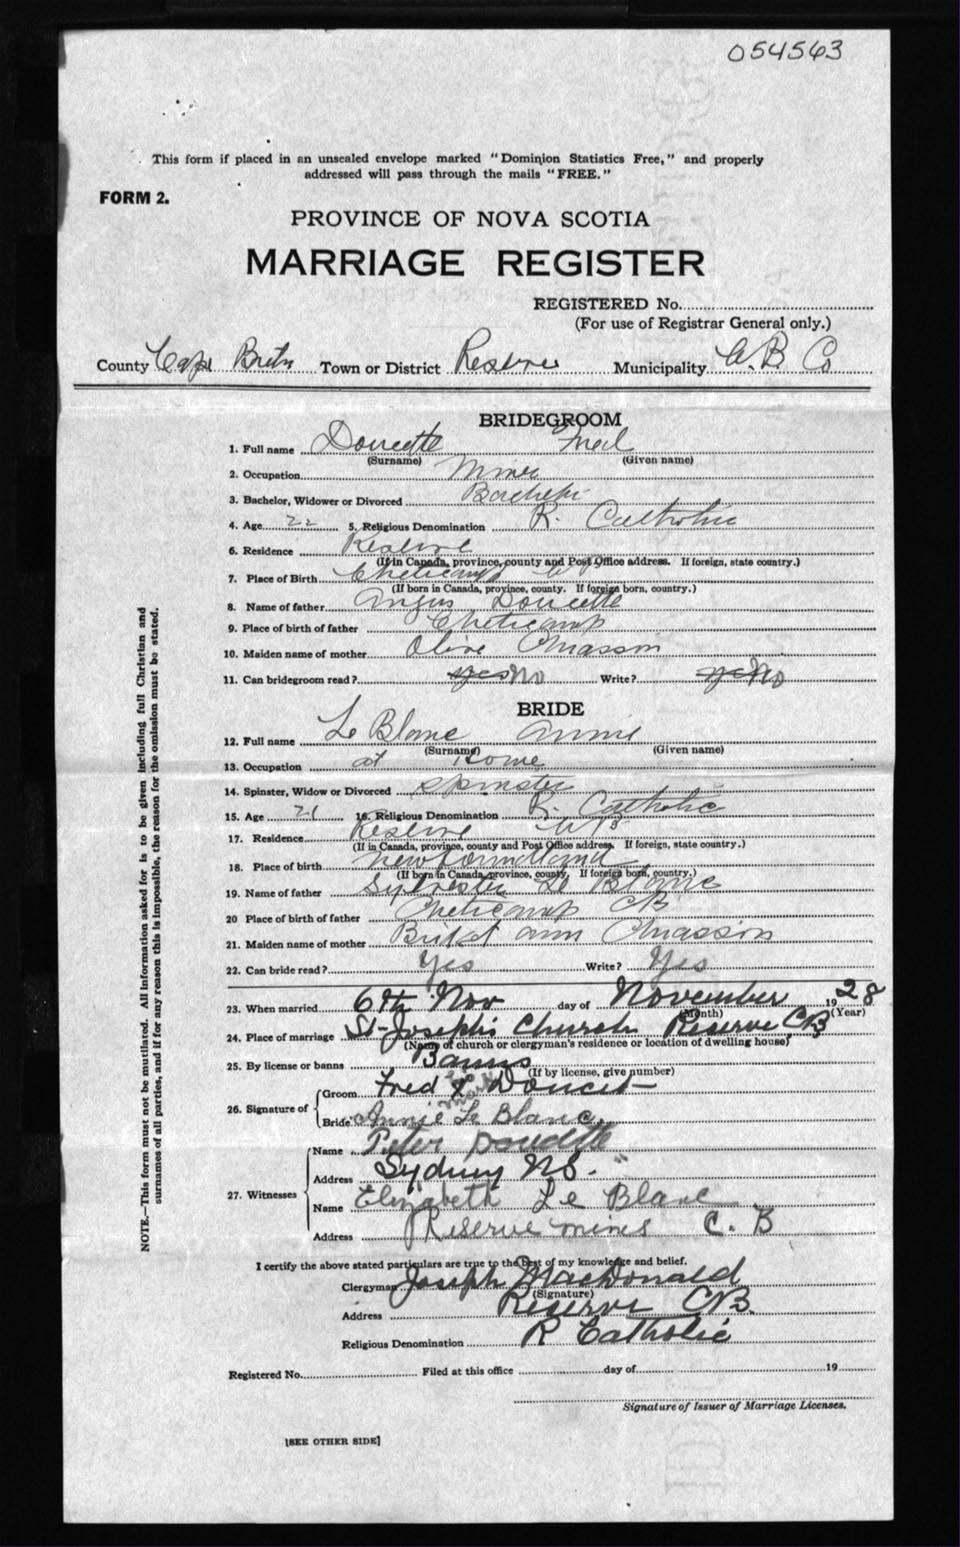 054543
This form if placed in an unsealed envelope marked "Dominion Statistics Free," and properly
addressed will pass through the mails "FREE."
FORM 2.
PROVINCE OF NOVA SCOTIA
MARRIAGE REGISTER
REGISTERED No.
(For use of Registrar General only.)
County Cape Breton Town or District Reserve Municipality C. B. Co
BRIDEGROOM
1. Full name Doucette Fred
(Surname) (Given name)
2. Occupation Miner
3. Bachelor, Widower or Divorced Bachelor
4. Age 22 5. Religious Denomination R. Catholic
6. Residence Reserve
(If in Canada, province, county and Post Office address. If foreign, state country.)
7. Place of Birth Cheticamp
(If born in Canada, province, county. If foreign born, country.)
8. Name of father Angus Doucette
9. Place of birth of father Cheticamp
10. Maiden name of mother Olive Chiasson
11. Can bridegroom read? yes No Write? yes No
BRIDE
12. Full name Le Blanc Annie
(Surname) (Given name)
13. Occupation at Home
14. Spinster, Widow or Divorced Spinster
15. Age 21 16. Religious Denomination R. Catholic
17. Residence Reserve
(If in Canada, province, county and Post Office address. If foreign, state country.)
18. Place of birth Newfoundland
(If born in Canada, province, county. If foreign born, country.)
19. Name of father Sylvester Le Blanc
20 Place of birth of father Cheticamp CB
21. Maiden name of mother ann Chiasson
22. Can bride read? Yes Write? Yes
23. When married 6th Nov day of November 19 28
(Month) (Year)
24. Place of marriage St-Joseph's Church Reserve CB
(Name of church or clergyman's residence or location of dwelling house)
25. By license or banns Banns
(If by license, give number)
26. Signature of
Groom Fred his x mark Doucet
Bride Annie Le Blanc
27. Witnesses
Name Peter Doucette
Address Sydney NS.
Name Elizabeth Le Blanc
Address Reserve mines C. B
I certify the above stated particulars are true to the best of my knowledge and belief.
Clergyman Joseph MacDonald
(Signature)
Address Reserve CB.
Religious Denomination R Catholic
Registered No. Filed at this office day of 19
Signature of Issuer of Marriage Licenses.
[SEE OTHER SIDE]
NOTE.—This form must not be mutilated. All information asked for is to be given including full Christian and
surnames of all parties, and if for any reason this is impossible, the reason for the omission must be stated.